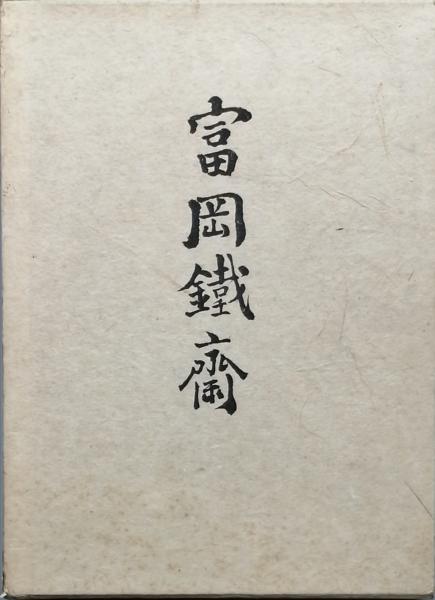 富岡鐵齋